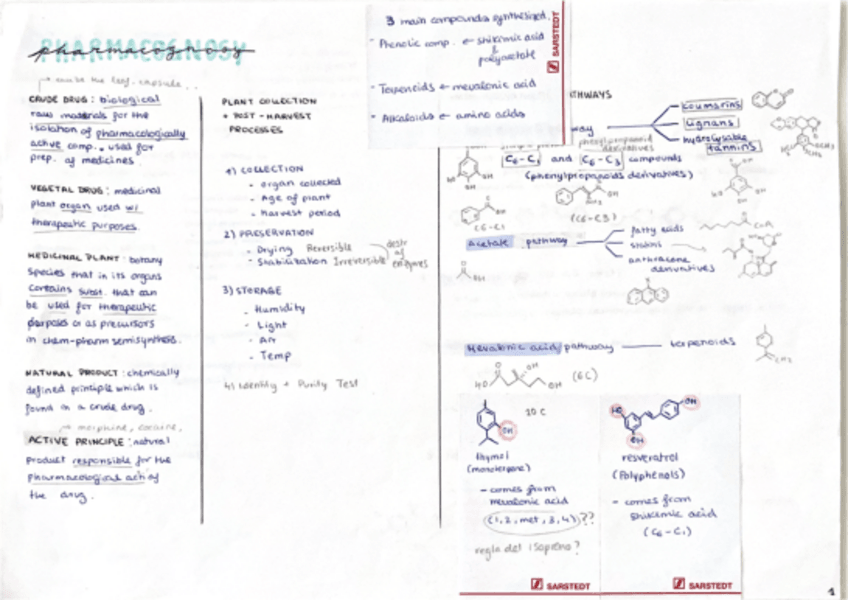 PHARMACOGNOSY
pharmacognosy
CRUDE DRUG: biological
raw materials for the
isolation of pharmacologically
active comp. used for
prep. of medicines.
VEGETAL DRUG: medicinal
plant organ used w/
therapeutic purposes.
MEDICINAL PLANT: botany
species that in its organs
contains subst. that can
be used for therapeutic
purposes or as precursors
in chem-pharm semisynthesis.
NATURAL PRODUCT: chemically
defined principle which is
found in a crude drug.
→ morphine, cocaine,
ACTIVE PRINCIPLE: natural
product responsible for the
pharmacological act of
the drug.
PLANT COLLECTION
+ POST-HARVEST
PROCESSES
1) COLLECTION
- organ collected
- Age of plant
- Harvest period
2) PRESERVATION
- Drying Reversible
- Stabilization Irreversible
destr of enzymes
3) STORAGE
- Humidity
- Light
- Air
- Temp
4) Identity + Purity Test
3 main compounds synthesized.
- Phenolic comp. ← shikimic acid
&
polyacetate
- Terpenoids ← mevalonic acid
- Alkaloids ← amino acids
SARSTEDT
THWAYS
way
coumarins
lignans
hydrolysable
tannins
phenylpropanoid
derivatives
C6-C1 and C6-C3 compounds
(phenylpropanoids derivatives)
C6-C1
(C6-C3)
acetate pathway
fatty acids
anthracene
derivatives
Mevalonic acid pathway — terpenoids
(6C)
10 C
thymol
(monoterpene)
- comes from
mevalonic acid
(1,2, met, 3,4)??
regla del isopreno?
SARSTEDT
resveratrol
(Polyphenols)
- comes from
shikimic acid
(C6-C1)
SARSTEDT
1